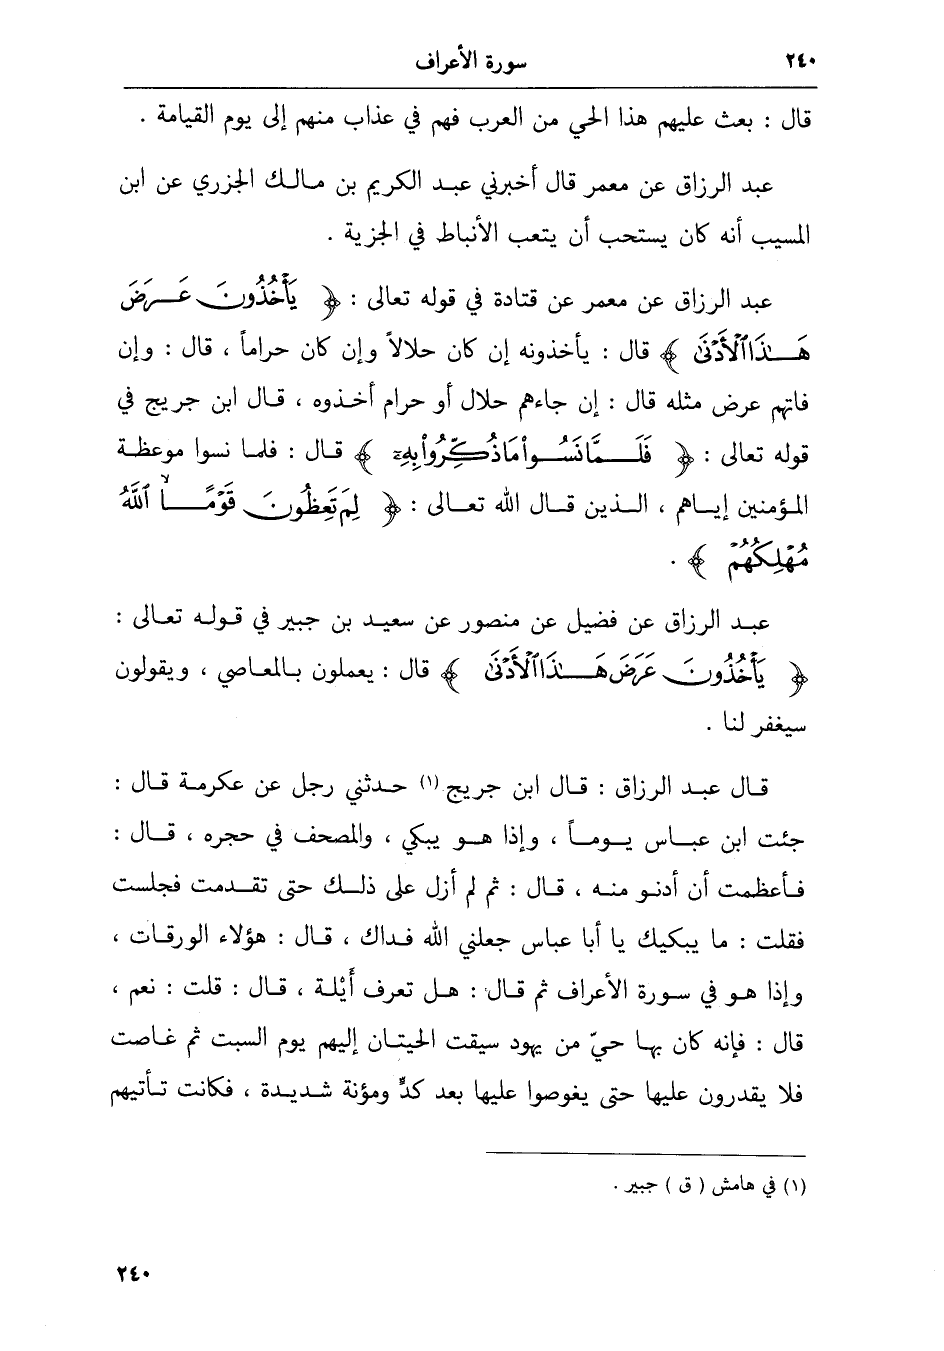 ٢٤٠
سورة الأعراف
قال : بعث عليهم هذا الحي من العرب فهم في عذاب منهم إلى يوم القيامة .
عبد الرزاق عن معمر قال أخبرني عبد الكريم بن مالك الجزري عن ابن
المسيب أنه كان يستحب أن يتعب الأنباط في الجزية .
عبد الرزاق عن معمر عن قتادة في قوله تعالى : ﴿ يَأْخُذُونَ عَرَضَ
هَـٰذَا ٱلْأَدْنَىٰ ﴾ قال : يأخذونه إن كان حلالاً وإن كان حراماً ، قال : وإن
فاتهم عرض مثله قال : إن جاءهم حلال أو حرام أخذوه ، قال ابن جريج في
قوله تعالى : ﴿ فَلَمَّا نَسُوا۟ مَا ذُكِّرُوا۟ بِهِۦٓ ﴾ قال : فلما نسوا موعظة
المؤمنين إياهم ، الذين قال الله تعالى : ﴿ لِمَ تَعِظُونَ قَوْمًا ۙ ٱللَّهُ
مُهْلِكُهُمْ ﴾ .
عبد الرزاق عن فضيل عن منصور عن سعيد بن جبير في قوله تعالى :
﴿ يَأْخُذُونَ عَرَضَ هَـٰذَا ٱلْأَدْنَىٰ ﴾ قال : يعملون بالمعاصي ، ويقولون
سيغفر لنا .
قال عبد الرزاق : قال ابن جريج (١) حدثني رجل عن عكرمة قال :
جئت ابن عباس يوماً ، وإذا هو يبكي ، والمصحف في حجره ، قال :
فأعظمت أن أدنو منه ، قال : ثم لم أزل على ذلك حتى تقدمت فجلست
فقلت : ما يبكيك يا أبا عباس جعلني الله فداك ، قال : هؤلاء الورقات ،
وإذا هو في سورة الأعراف ثم قال : هل تعرف أَيْلة ، قال : قلت : نعم ،
قال : فإنه كان بها حيّ من يهود سيقت الحيتان إليهم يوم السبت ثم غاصت
فلا يقدرون عليها حتى يغوصوا عليها بعد كدٍّ ومؤنة شديدة ، فكانت تأتيهم
(١) في هامش ( ق ) جبير .
٢٤٠